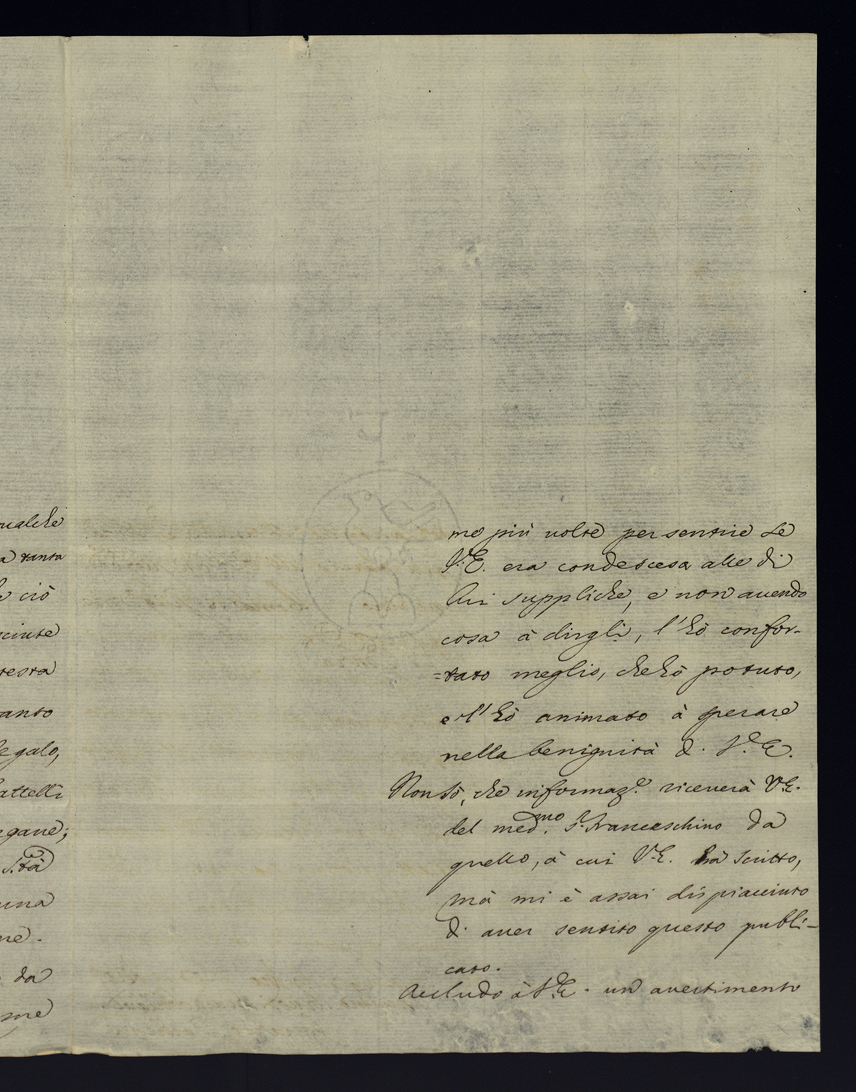 ualche
a tanta
e ciò
sciute
testa
anto
egalo,
attelli
egane;
S.tà
una
ne.
da
me
me più volte per sentire se
V.E. era condescesa alle di
lui suppliche, e non avendo
cosa à dirgli, l'hò confor-
=tato meglio, che hò potuto,
e l'hò animato à sperare
nella benignità di V.E.
Non sò, che informaz.e riceverà V.E.
del med.mo S.r Franceschino da
quello, à cui V.E. hà scritto,
mà mi è assai dispiacciuto
di aver sentito questo publi-
cato.
Accludo à V.E. un avertimento